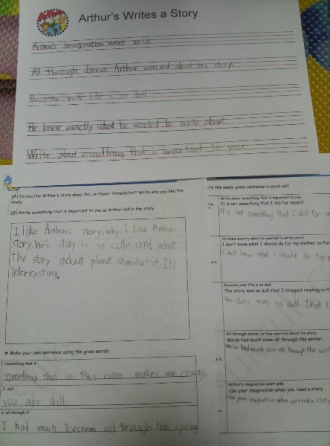 Arthur's Writes a Story
Arthur's imagination went wild.
All through dinner Arthur worried about his story.
Because your life is so dull.
He knew exactly what he wanted to write about.
Write about something that is important to you.
story.
(2) Write something that is important to you as Arthur did in the story.
I like Arthur's story, why I like Arthur
story, he's story is so and
the story about planet Shmellafint. It's
interrasting.
● Make your own sentence using the given words.
1. something that is
something this in this room makes me crazy.
2. dull
you are dull
3. all through
I had much Icecream all through the spring
newly given sentence in each cell.
Write about something that is important to you.
It is not something that I did for myself.
It is not something that I did for m
He knew exactly what he wanted to write about.
I don't know what I should do for my mother on
I don't know what I should do for my
Because your life is so dull.
The story was so dull that I stopped reading
the story was so dull that I
All through dinner Arthur worried about his story.
We've had much snow all through the winter.
We've had much snow all through the
Arthur's imagination went wild.
Use your imagination when you read a story.
Use your imagination when you read a story